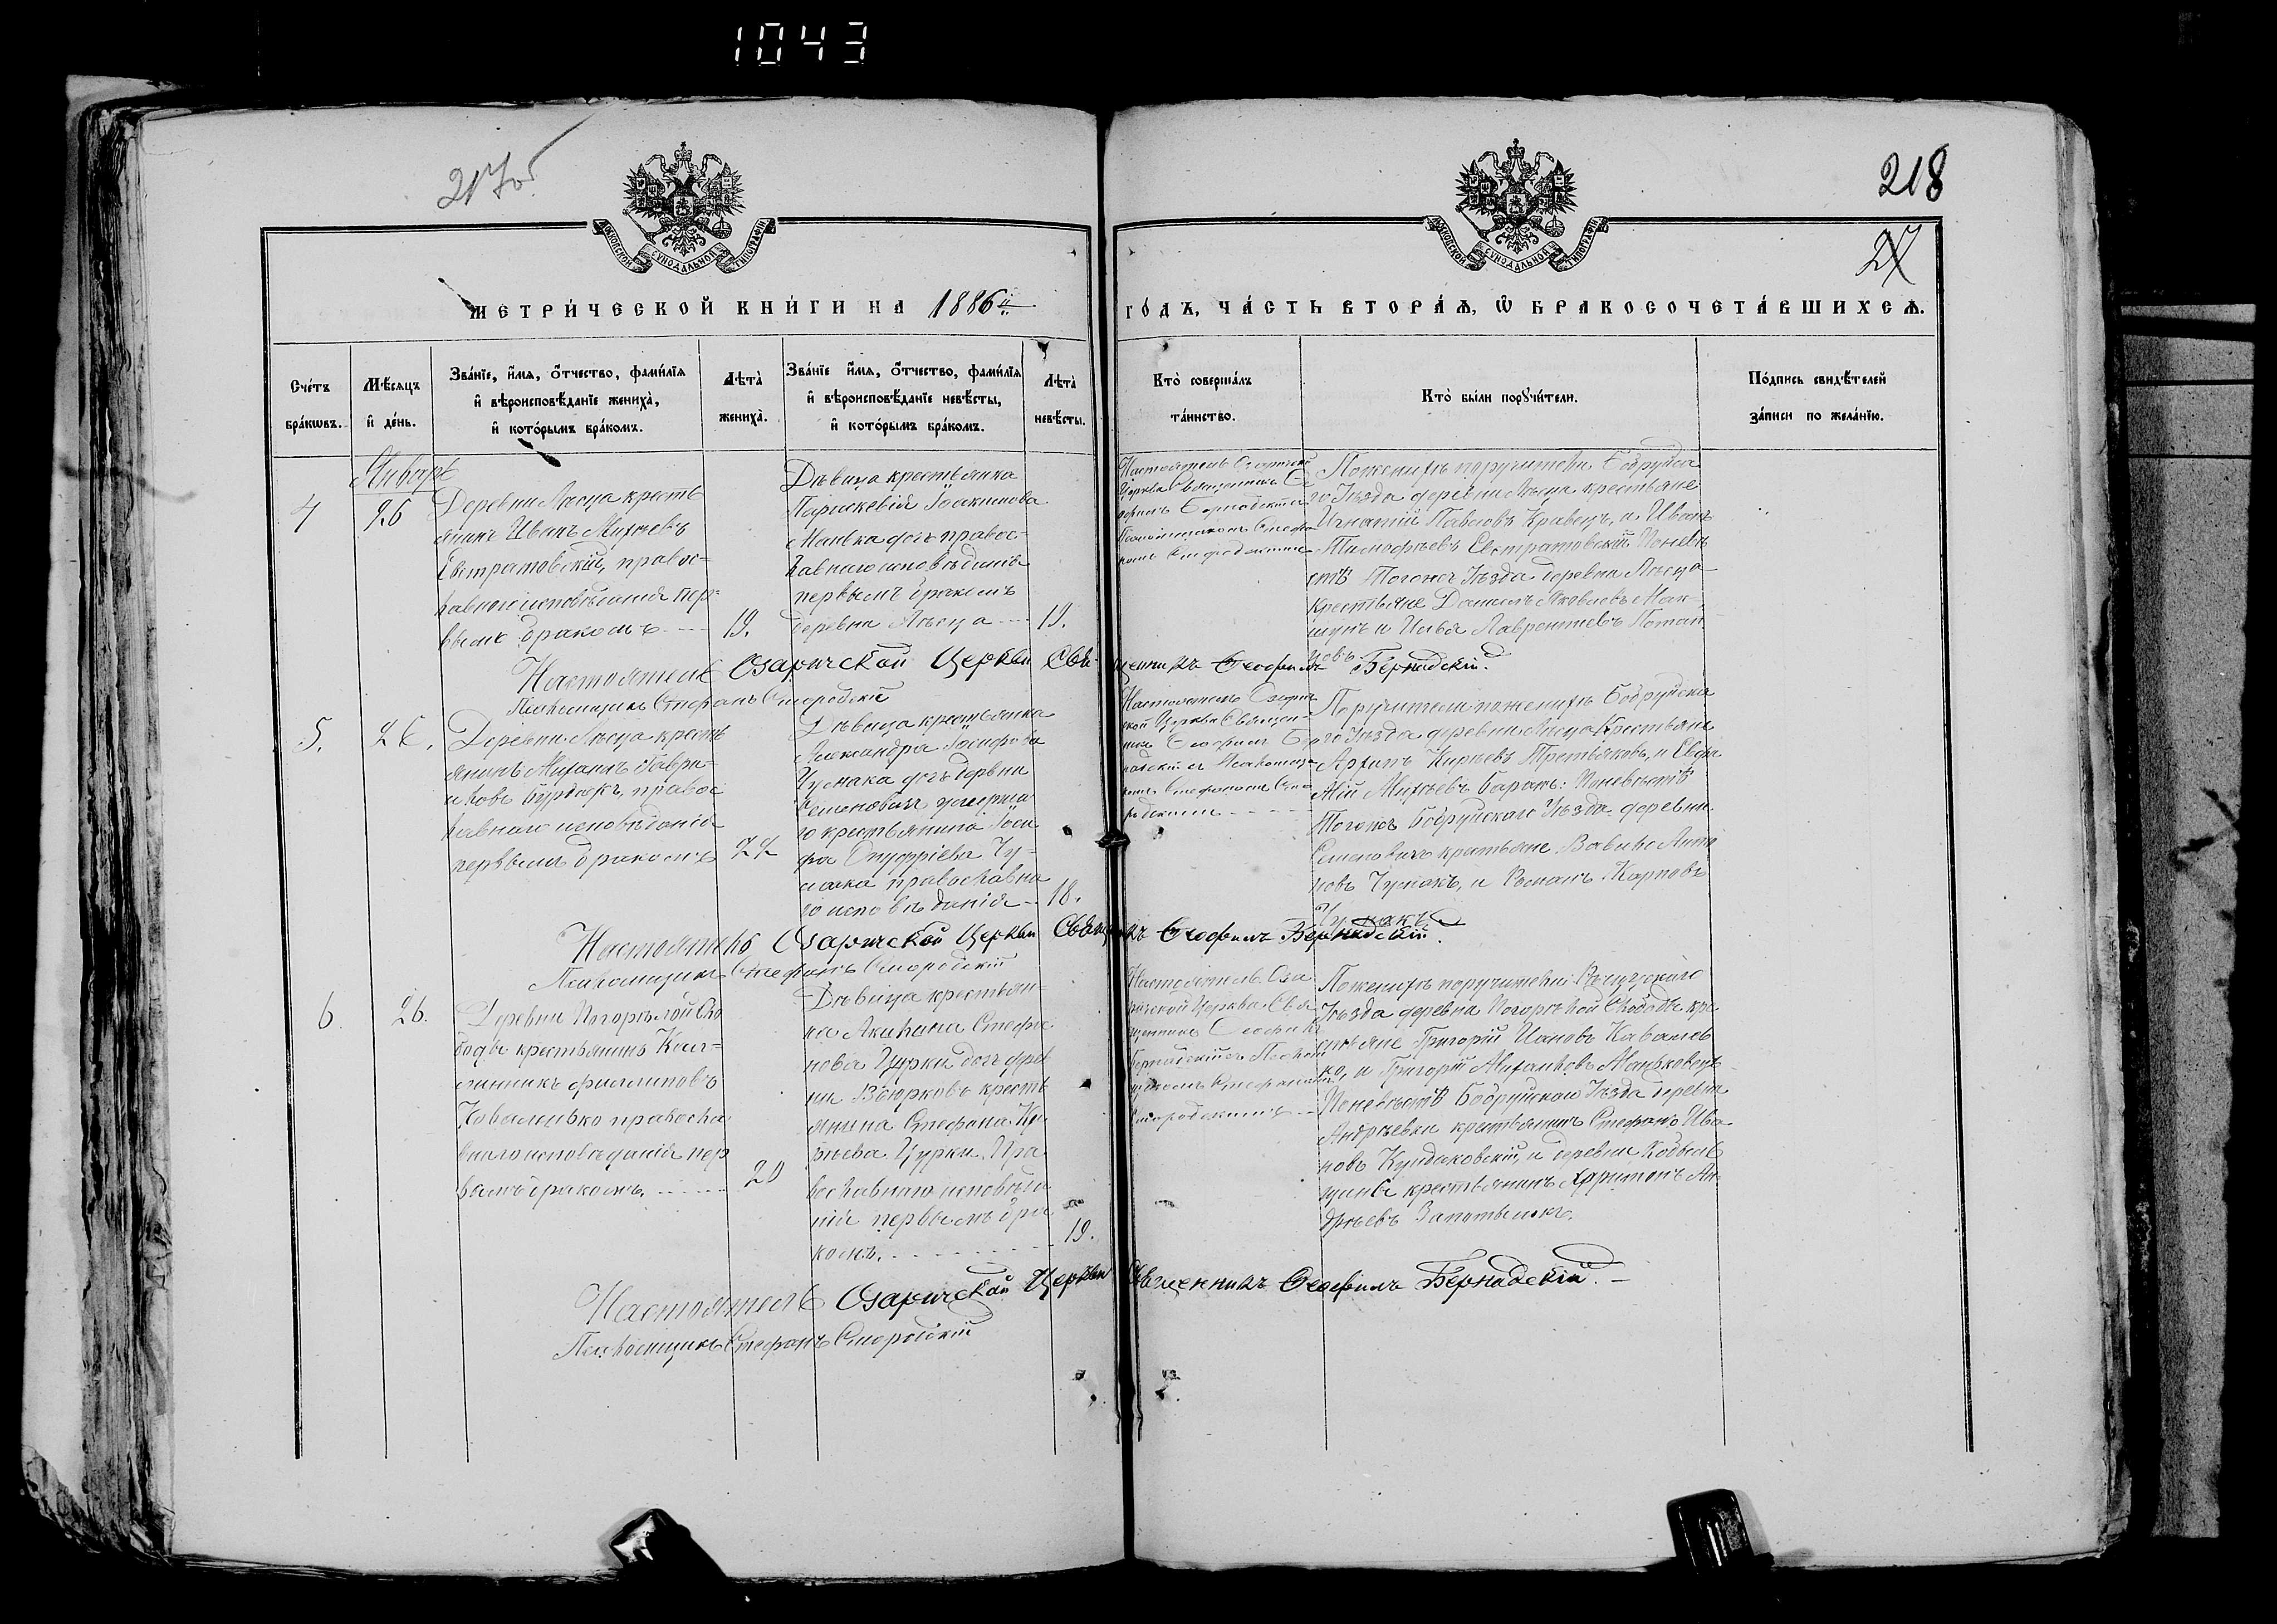 1043
217об
218
27
МОСКОВСКОЙ СѴНОДАЛЬНОЙ ТИПОГРАФІИ
МОСКОВСКОЙ СѴНОДАЛЬНОЙ ТИПОГРАФІИ
МЕТРИ́ЧЕСКОЙ КНИ́ГИ НА 1886й
ГО́ДЪ, ЧА́СТЬ ВТОРА́Ѧ, Ѡ҆ БРАКОСОЧЕТА́ВШИХСѦ.
Сче́тъ бра́кѡвъ.
Мѣ́сяцъ и҆ де́нь.
Зва́нїе, и҆́мя, ѻ҆́тчество, фами́лїя
и҆ вѣроисповѣ́данїе жениха̀,
и҆ кото́рымъ бра́комъ.
Лѣта̀ жениха̀.
Зва́нїе и҆́мя, ѻ҆́тчество, фами́лїя
и҆ вѣроисповѣ́данїе невѣ́сты,
и҆ кото́рымъ бра́комъ.
Лѣта̀ невѣ́сты.
Кто̀ соверша́лъ
та́инство.
Кто̀ бы́ли порꙋчи́тели.
По́дпись свидѣ́телей
за́писи по жела́нїю.
Январь
4
26
Деревни Лѣсца кресть
янинъ Иванъ Михѣевъ
Евстратовскій, правос-
лавнаго исповѣданія пер-
вымъ бракомъ
19.
Дѣвица крестьянка
Параскевія Іоакимова
дочь правос-
лавнаго исповѣданія
первымъ бракомъ
деревни Лѣсца
19.
Настоятель Озаричской
Церкви Священникъ Ѳе
офилъ Бернадскій съ
Псаломщикомъ Стефа
номъ Смородскимъ
По женихѣ поручители Бобруйска
го Уѣзда деревни Лѣсца крестьяне
Игнатій Павловъ Кравецъ, и Иванъ
Тимофѣевъ Евстратовскій. По невѣ
стѣ Того же Уѣзда деревни Лѣсца
крестьяне Даниилъ Яковлевъ Мак
шунъ и Илья Лаврентіевъ Потап
цовъ
Настоятель Озаричской Церкви Священникъ Ѳеофилъ Бернадскій.
Псаломщикъ Стефанъ Смородскій
5.
26.
Деревни Лѣсца кресть
янинъ Михаилъ Гаври-
иловъ правос
лавнаго исповѣданія
первымъ бракомъ
22
Дѣвица крестьянка
Александра Іосифова
Чумака дочь деревни
Семеновичъ умерша
го крестьянина Іоси
фа Онуфріева Чу-
мака православна
го исповѣданія
18.
Настоятель Озарич
ской Церкви Священ-
никъ Ѳеофилъ Бер
надскій съ Псаломщи
комъ Стефаномъ Смо
родскимъ
Поручители по женихѣ Бобруйска
го Уѣзда деревни Лѣсца Крестьяне
Архипъ Кирѣевъ Третьяковъ, и Евфи
мій Михѣевъ Баранъ: По невѣстѣ
Того же Бобруйскаго Уѣзда деревни
Семеновичъ крестьяне Вавило Анто
новъ Чумакъ, и Романъ Карповъ
Чумакъ
Настоятель Озаричской Церкви Священникъ Ѳеофилъ Бернадскій.
Псаломщикъ Стефанъ Смородскій
6.
26.
Деревни Погорѣлой Сло
боды крестьянинъ Кал-
линникъ Филлиповъ
Коваленько правосла
внаго исповѣданія пер
вымъ бракомъ.
20
Дѣвица крестьян-
ка Акилина Стефа
нова Цурки дочь дерев
ни кресть
янина Стефана Ки
рѣева Цурки, Пра
вославнаго исповѣда
нія первымъ бра
комъ.
19.
Настоятель Оза
ричской Церкви Свя
щенникъ Ѳеофилъ
Бернадскій съ Псалом
щикомъ Стефаномъ
Смородскимъ
По женихѣ поручители Рѣчицкаго
Уѣзда деревни Погорѣлой Слободы кре
стьяне Григорій Ивановъ Кавален
ко, и Григорій Михаиловъ Маньковецъ
По невѣстѣ Бобруйскаго Уѣзда деревни
Андрѣевки крестьянинъ Стефанъ Ива
новъ и деревни
крестьянинъ Харитонъ Ан
дрѣевъ
Настоятель Озаричской Церкви Священникъ Ѳеофилъ Бернадскій.
Псаломщикъ Стефанъ Смородскій